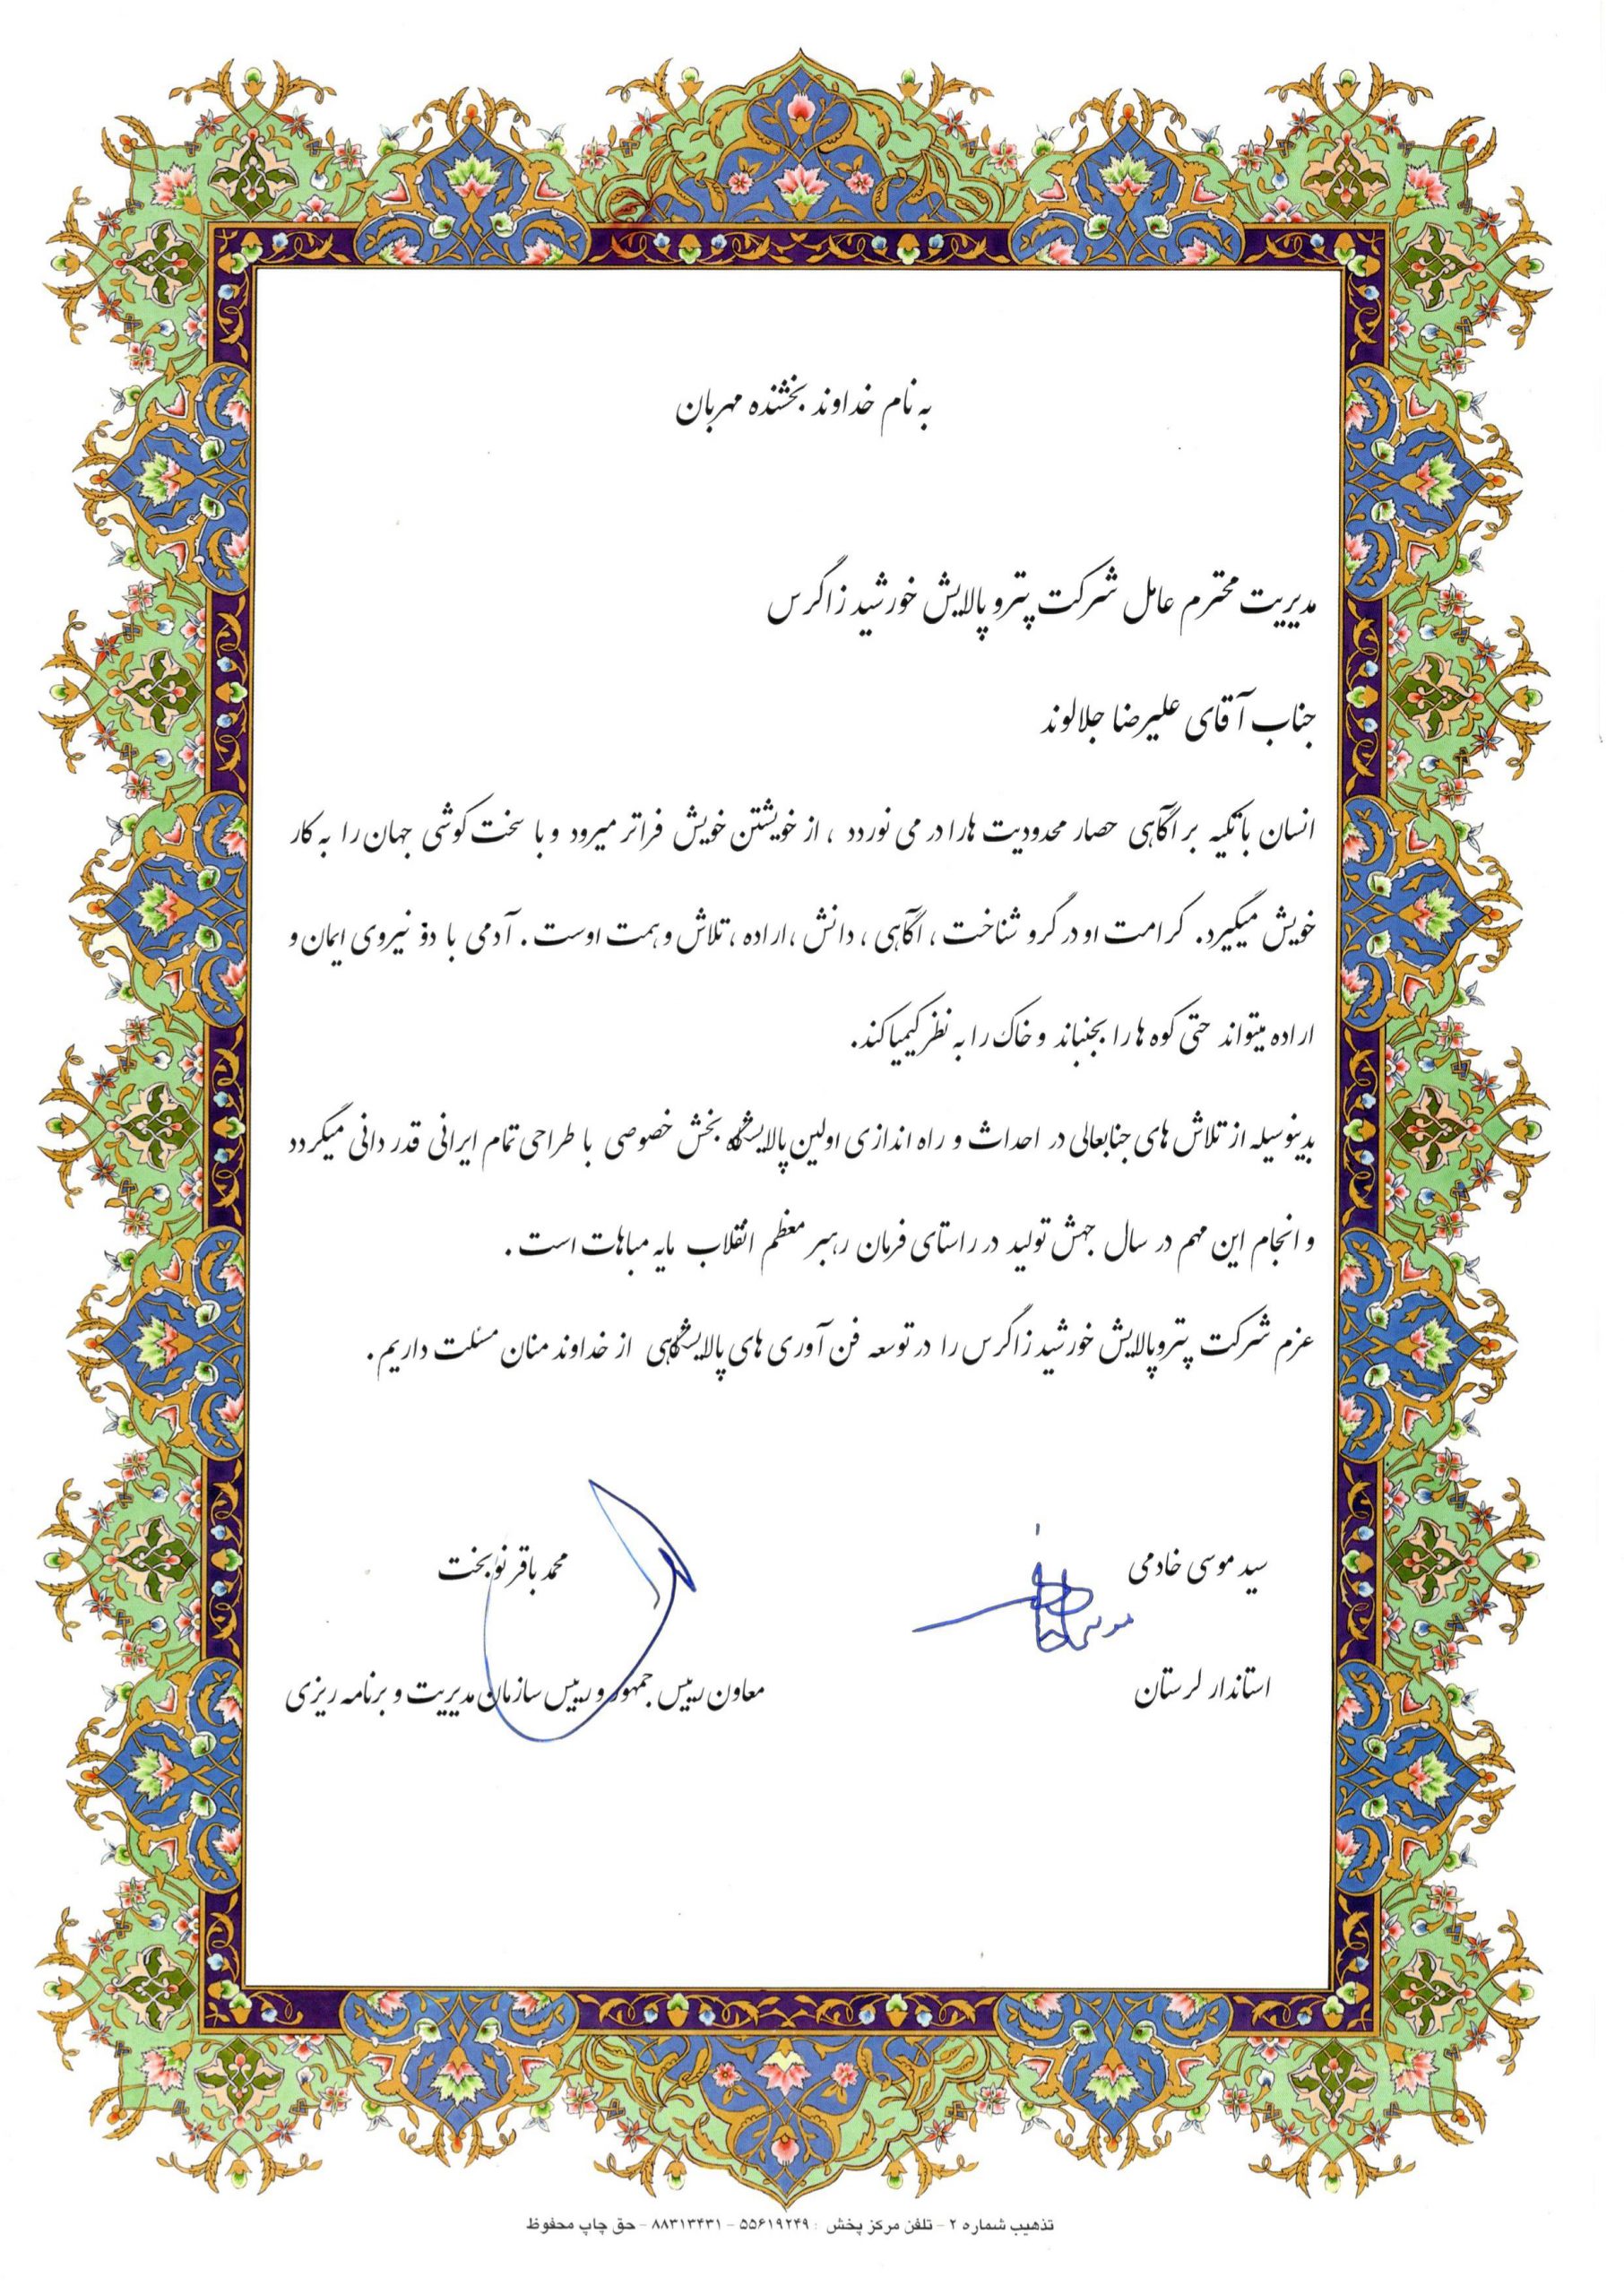 به نام خداوند بخشنده مهربان
مدیریت محترم عامل شرکت پترو پالایش خورشید زاگرس
جناب آقای علیرضا جلالوند
انسان با تکیه بر آگاهی حصار محدودیت ها را در می نوردد ، از خویشتن خویش فراتر میرود و با سخت کوشی جهان را به کار
خویش میگیرد. کرامت او در گرو شناخت ، آگاهی ، دانش ، اراده ، تلاش و همت اوست . آدمی با دو نیروی ایمان و
اراده میتواند حتی کوه ها را بجنباند و خاک را به نظر کیمیا کند.
بدینوسیله از تلاش های جنابعالی در احداث و راه اندازی اولین پالایشگاه بخش خصوصی با طراحی تمام ایرانی قدر دانی میگردد
و انجام این مهم در سال جهش تولید در راستای فرمان رهبر معظم انقلاب مایه مباهات است .
عزم شرکت پتروپالایش خورشید زاگرس را در توسعه فن آوری های پالایشگاهی از خداوند منان مسئلت داریم .
سید موسی خادمی
محمد باقر نوبخت
استاندار لرستان
معاون رییس جمهور و رییس سازمان مدیریت و برنامه ریزی
تذهیب شماره ۲ - تلفن مرکز پخش : ۵۵۶۱۹۲۴۹ - ۸۸۳۱۳۴۳۱ - حق چاپ محفوظ